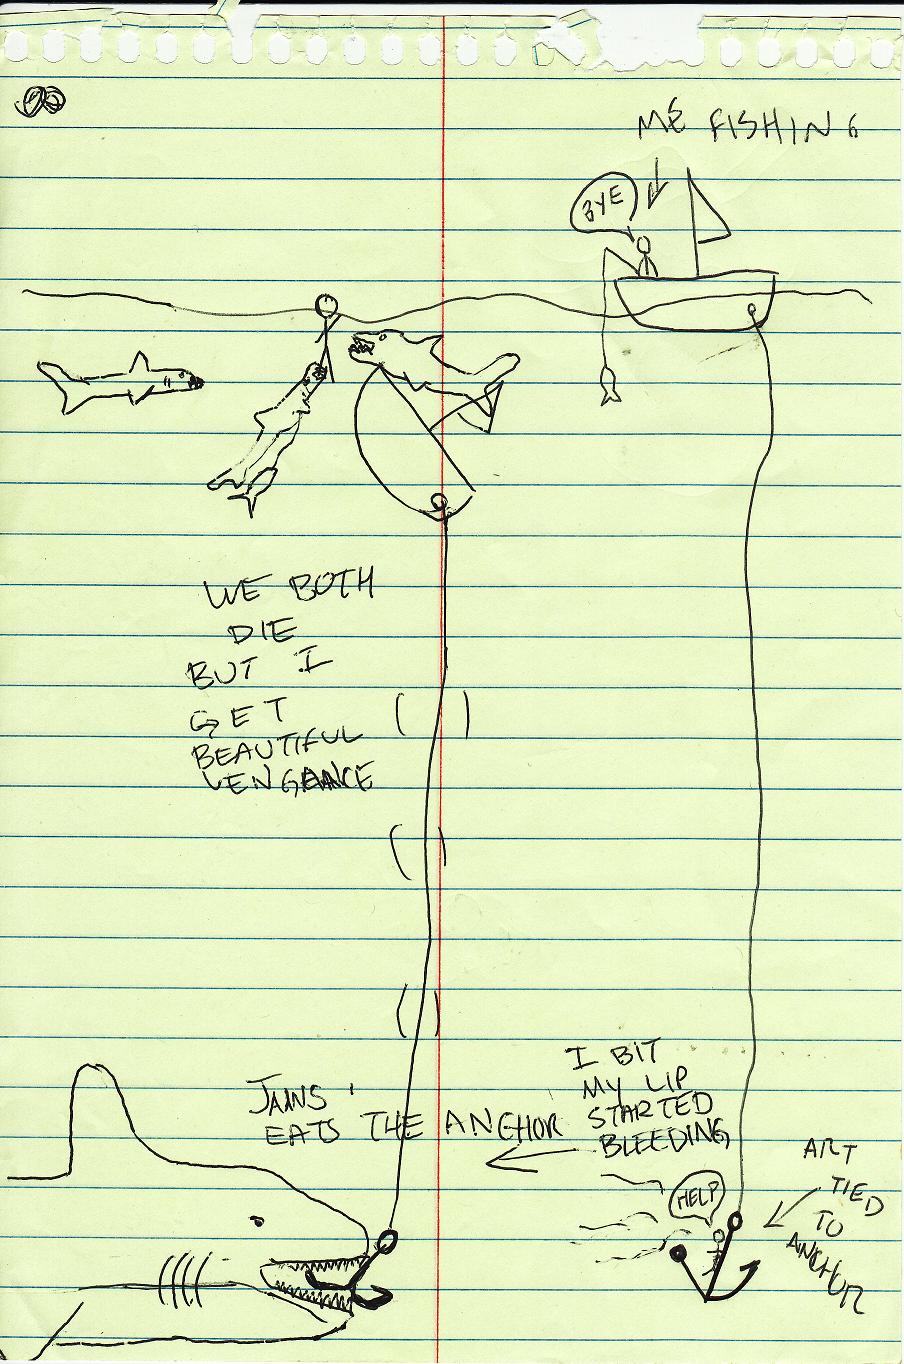 ME FISHING
BYE
WE BOTH
DIE
BUT I
GET
BEAUTIFUL
VENGANCE
I BIT
MY LIP
STARTED
BLEEDING
JAWS
EATS THE ANCHOR
HELP
ART
TIED
TO
ANCHOR